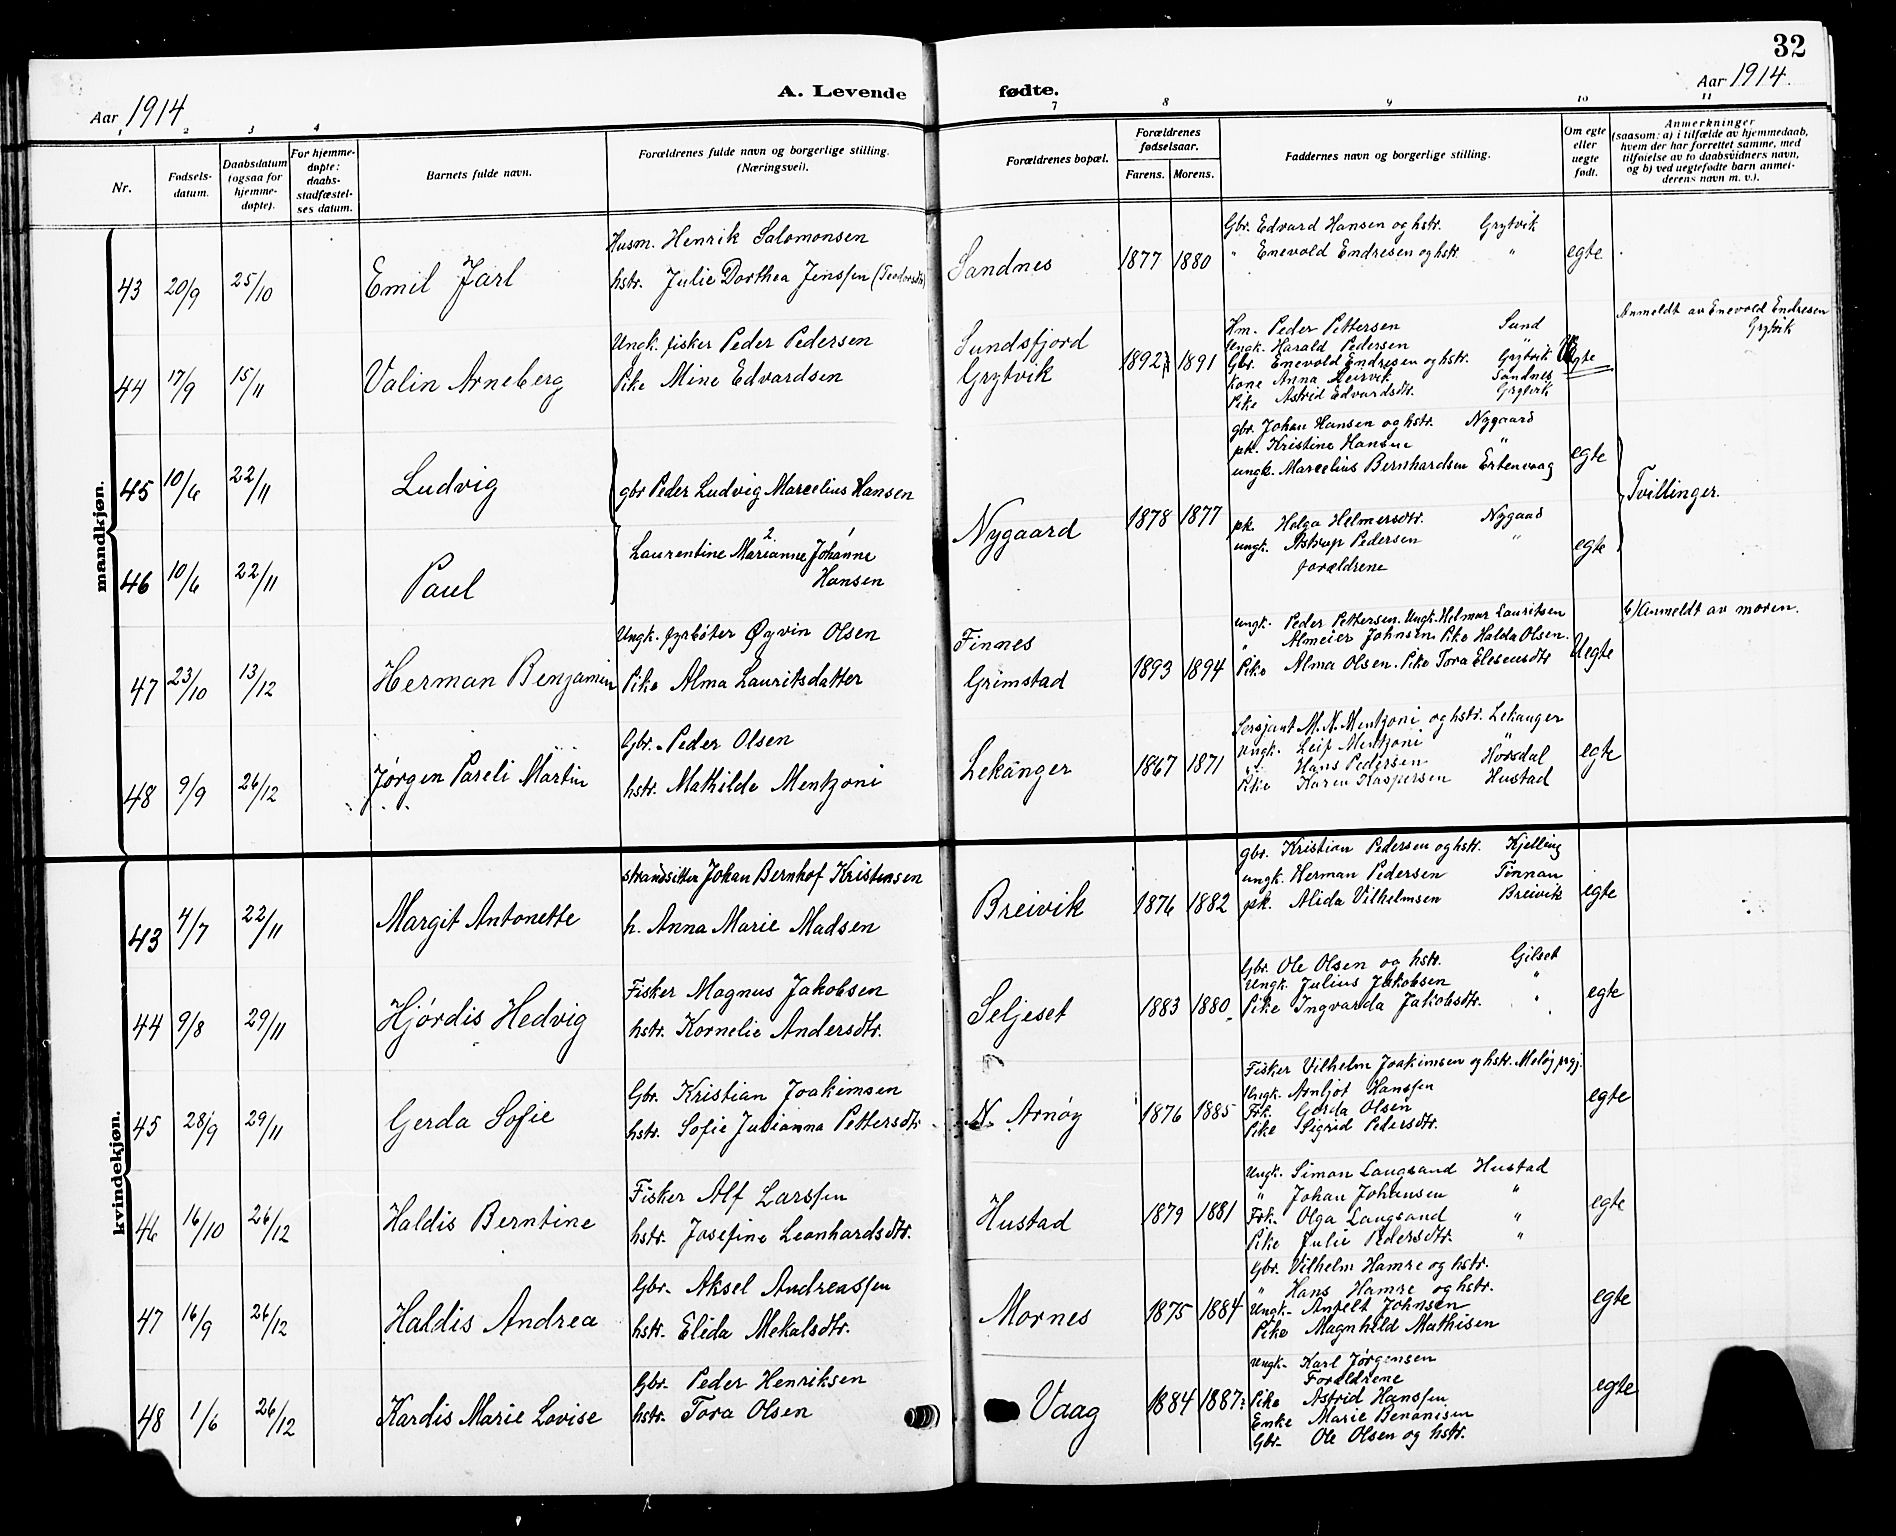 32
Aar 1914
A. Levende fødte.
Aar 1914.
1 2 3 4 7 8 9 10 11
Nr.
Fødsels-
datum.
Daabsdatum
(ogsaa for
hjemme-
døpte).
For hjemme-
døpte:
daabs-
stadfæstel-
ses datum.
Barnets fulde navn.
Forældrenes fulde navn og borgerlige stilling.
(Næringsvei).
Forældrenes bopæl.
Forældrenes
fødselsaar.
Farens. Morens.
Faddernes navn og borgerlige stilling.
Om egte
eller
uegte
født.
Anmerkninger
(saasom: a) i tilfælde av hjemmedaab,
hvem der har forrettet samme, med
tilføielse av to daabsvidners navn,
og b) ved uegtefødte barn anmel-
derens navn m. v.).
mandkjøn.
43 20/9 25/10 Emil Jarl
Husm. Henrik Salomonsen
hstr. Julie Dorthea Jenssen (Teodorsdtr)
Sandnes 1877 1880
Gbr. Edvard Hansen og hstr. Grytvik
" Enevold Endresen og hstr. "
egte
44 17/9 15/11 Valin Arneberg
Ungk. fisker Peder Pedersen
Pike Mine Edvardsen
Sundsfjord
Grytvik
1892 1891
Hm. Peder Pettersen Sund
Ungk. Harald Pedersen "
Gbr. Enevold Endresen og hstr. Grytvik
Kone Anna Leirvik Sandnes
Pike Astrid Edvardsdtr. Grytvik
Uegte
Anmeldt av Enevold Endresen
Grytvik
45 10/6 22/11 Ludvig
gbr Peder Ludvig Marcelius Hansen
gbr. Johan Hansen og hstr. Nygaard
pk. Kristine Hansen "
ungk. Marcelius Bernhardsen Ertenvaag
egte
Tvillinger.
Nygaard 1878 1877
46 10/6 22/11 Paul
Laurentine Marianne 2 Johanne 1
Hansen
pk. Helga Helmersdtr. Nygaad
ungk. Astrup Pedersen "
forældrene
egte
47 23/10 13/12 Herman Benjamin
Ungk. fyrbøter Øyvin Olsen
Pike Alma Lauritsdatter
Finnes
Grimstad
1893 1894
ungk. Peder Pettersen. Ungk. Helmar Lauritsen
" Almeier Johnsen. Pike Halda Olsen.
Pike Alma Olsen. Pike Tora Elesensdtr
Uegte
b) Anmeldt av moren.
48 9/9 26/12 Jørgen Pareli Martin
Gbr. Peder Olsen
hstr. Mathilde Mentzoni
Lekanger 1867 1871
Sersjant M. N. Mentzoni og hstr. Lekanger
Ungk. Leif Mentzoni "
" Hans Pedersen Horsdal
Pike Karen Kaspersen Hustad
egte
kvindekjøn.
43 4/7 22/11 Margit Antonette
strandsitter Johan Bernhof Kristensen
h. Anna Marie Madsen
Breivik 1876 1882
gbr. Kristian Pedersen og hstr. Kjelling
ungk. Herman Pedersen Finnan
pk. Alida Vilhelmsen Breivik
egte
44 9/8 29/11 Hjørdis Hedvig
Fisker Magnus Jakobsen
hstr. Kornelie Andersdtr.
Seljeset 1883 1880
Gbr. Ole Olsen og hstr. Gilset
Ungk. Julius Jakobsen "
Pike Ingvarda Jakobsdtr. "
egte
45 28/9 29/11 Gerda Sofie
Gbr. Kristian Joakimsen
hstr. Sofie Julianna Pettersdtr
N. Arnøy 1876 1885
Fisker Vilhelm Joakimsen og hstr. Meløy prgj.
Ungk. Arnljot Hanssen
Frk. Gerda Olsen
Pike Sigrid Pedersdtr.
egte
46 16/10 26/12 Haldis Berntine
Fisker Alf Larssen
hstr. Josefine Leonhardsdtr.
Hustad 1879 1881
Ungk. Simon Langsand Hustad
" Johan Johansen "
Frk. Olga Langsand "
Pike Julie Pedersdtr. "
egte
47 16/9 26/12 Haldis Andrea
Gbr. Aksel Andreassen
hstr. Elida Mekalsdtr.
Mornes 1875 1884
Gbr. Vilhelm Hamre og hstr.
" Hans Hamre og hstr.
Ungk. Anfelt Johnsen
Pike Magnhild Mathisen
egte
48 1/6 26/12 Kardis Marie Lovise
Gbr. Peder Henriksen
hstr. Tora Olsen
Vaag 1884 1887
Ungk. Karl Jørgensen
Forældrene
Pike Astrid Hanssen
Enke Marie Benonisen
Gbr. Ole Olsen og hstr.
egte